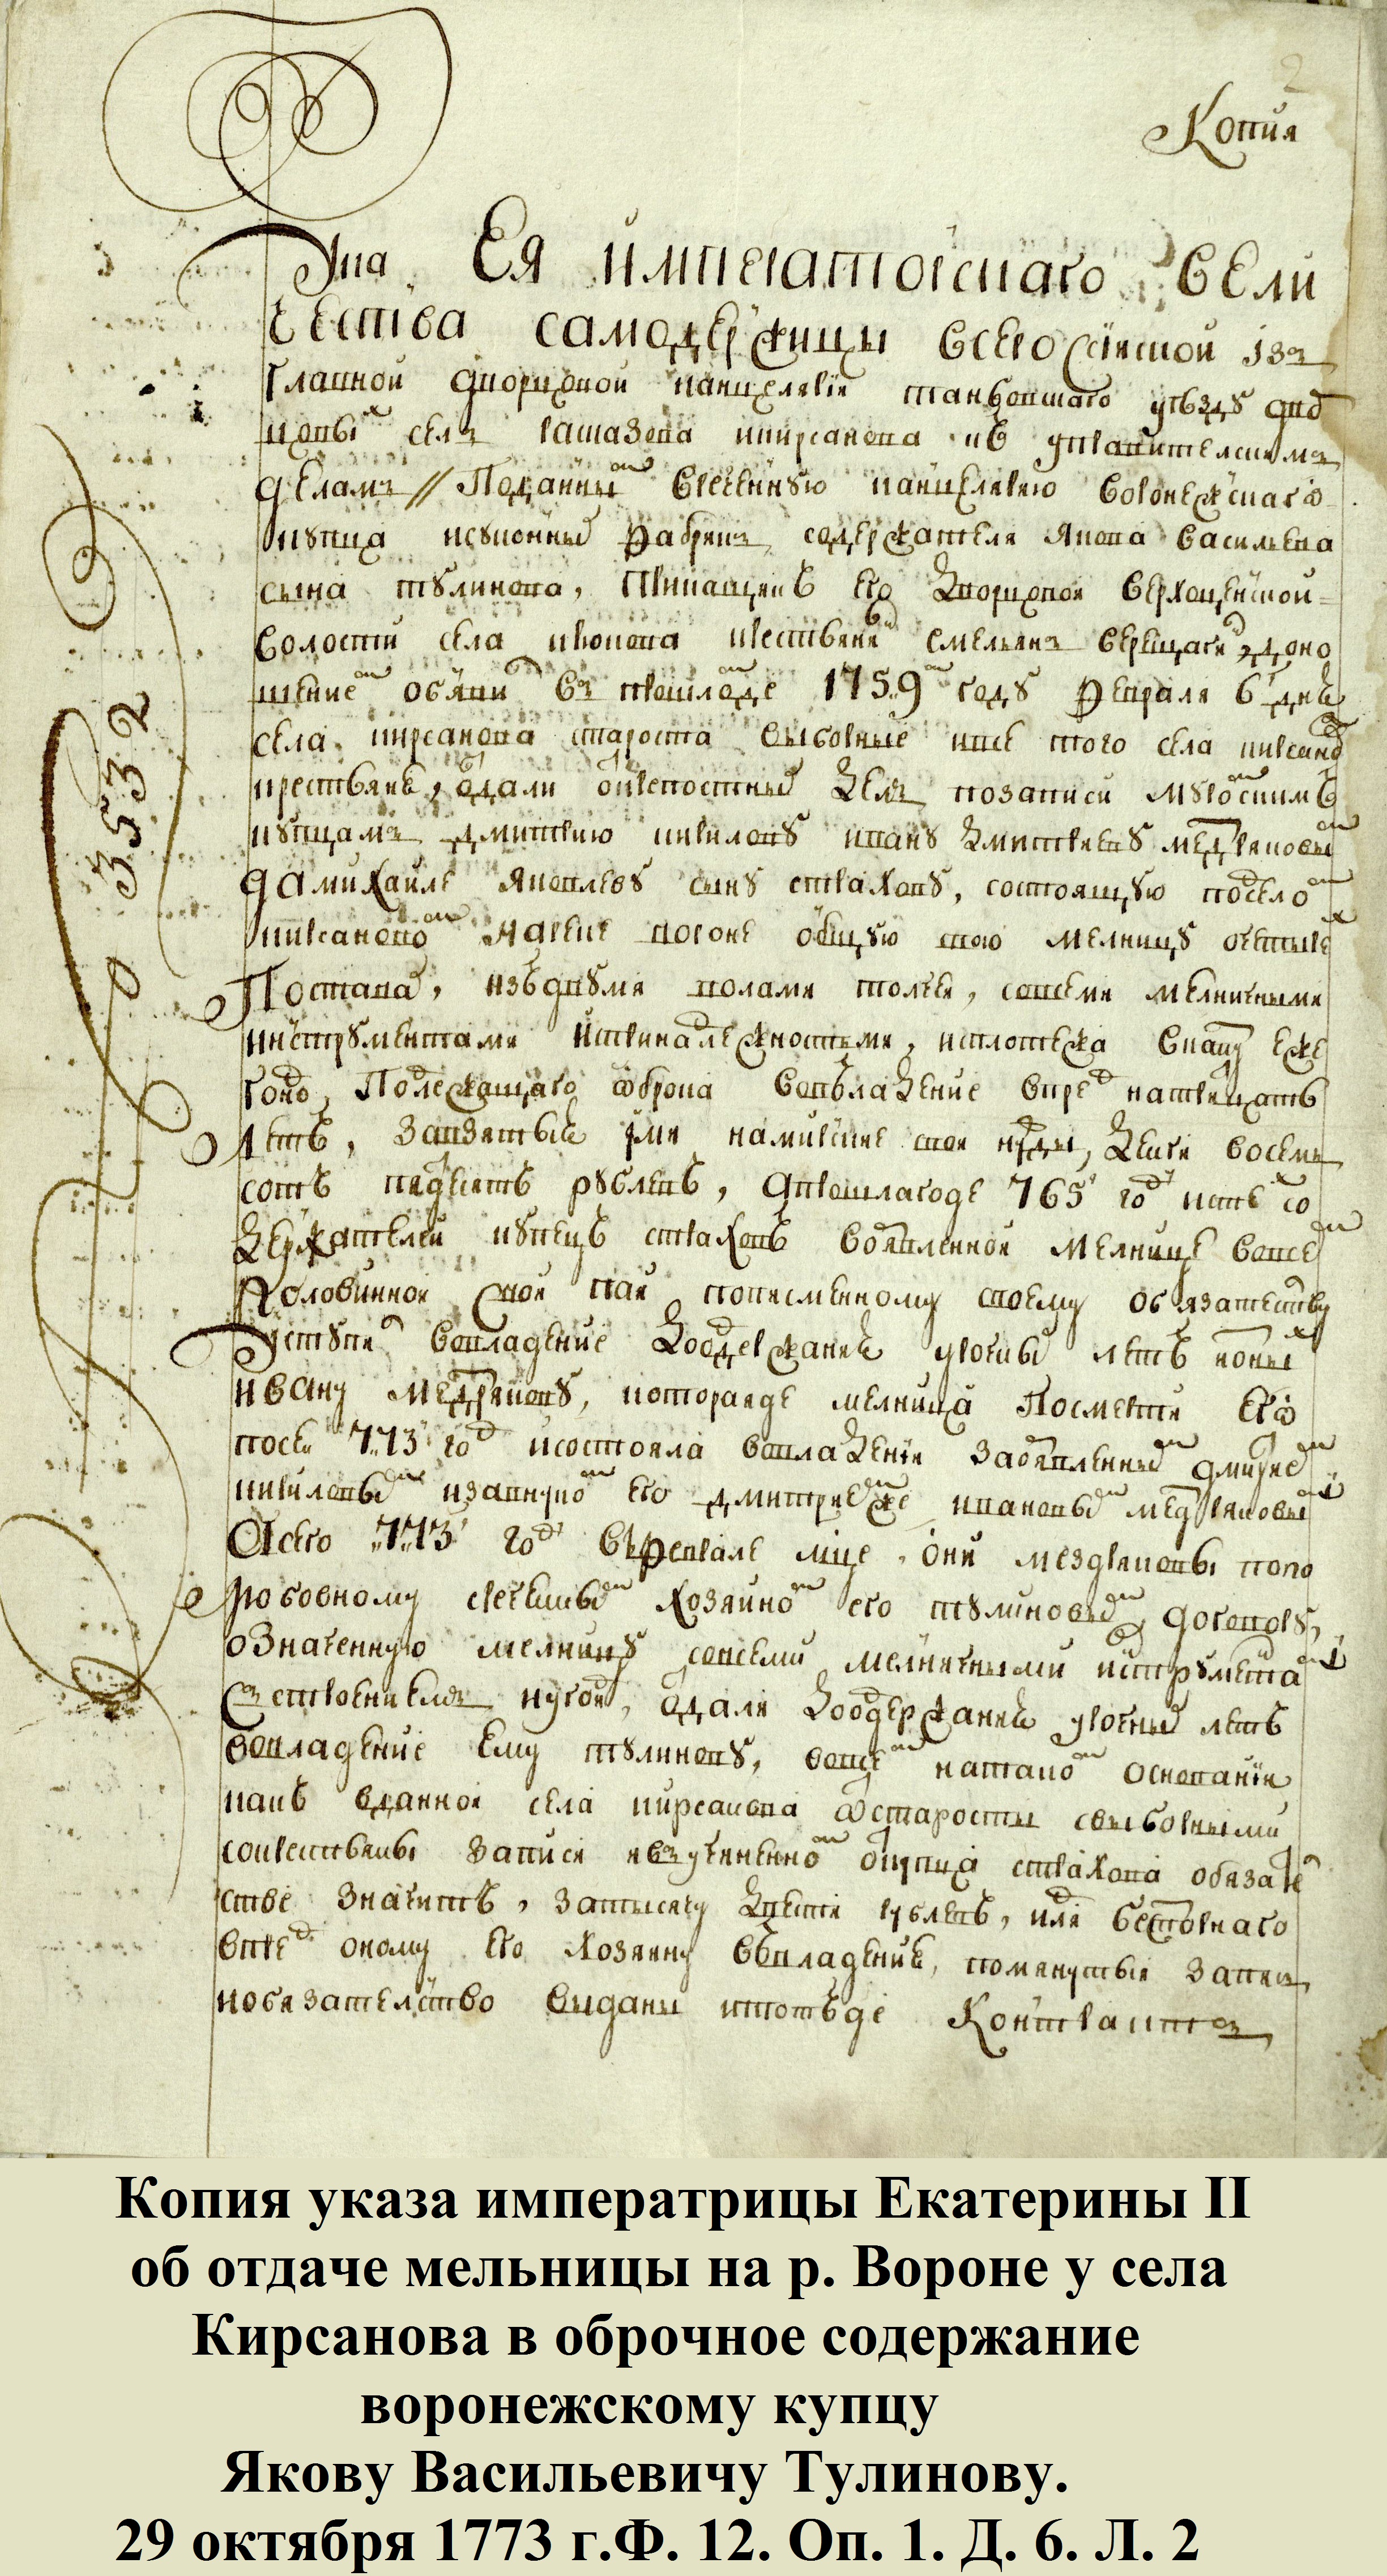 Копия
Указ Ея императорскаго вели
чества самодержицы всеросиской из
главной дворцовой канцелярии танбовшаго уезду двор
цовых сел рашазова икирсанова кь управителским
делам// Поданным вреченную канцелярию воронежскаго
купца исуконных фабрик содержателя якова васильева
сына тулинова, прикащикь его дворцовой верхоценской
волости села крюкова крестьянин емельян верещагин доно
шением обявил в прошлом де 1759м году февраля 6 днь
села кирсанова староста выборные ивсе того села кирсанова
крестьяне, отдали откепостных дел позаписи
купцам дмитрию кирилову ивану дмитриеву медряковым
да михайле яковлеву сыну страхову, состоящую подселом
кирсановом нареке вороне общую свою мелницу очетырех
Поставах, изьдвумя полами толчеи, совсеми мелничными
инструментами ипринадлежностьми, исплотежа вказну еже
годно Подлежащаго оброка вовьладение впред натритцать
леть, завзятые ими намирские свои нужды, денги восемь
соть педесять рублевь, Апрошлагоде 765 году ис тех со
держателей купець страховь вобявленной мелнице весь
половинной свой пай пописменному своему обязателству
уступил вовладение Ивсодержание урочных леть
ивану медрякову, котораяде мелница Посмерти его
посей 773 год исостояла вовладении заобявленным дмитрием
кириловым извнуком его дмитриемже ивановым медряковым
А сего 773 году вфеврале мце, они мездряковы попо
любовному счетчиком хозяином его тулиновым, договору,
означенную мелницу совсеми мелничными иструмента
сстроением икругом, отдали Ивсодержание урочных леть
вовладение ему тулинову, вовсем натаком основании
какь вданной села кирсанова отстаросты свыборными
сокрестьяны записи ивучиненном откупца страхова обязател
стве значить, затысячу двести рублевь, идля безспорнаго
впред оному его хозяину вовладение, помянутые записи
иобязателство выданы ипотомуде Контракт
3532
Копия указа императрицы Екатерины II
об отдаче мельницы на р. Вороне у села
Кирсанова в оброчное содержание
воронежскому купцу
Якову Васильевичу Тулинову.
29 октября 1773 г.Ф. 12. Оп. 1. Д. 6. Л. 2